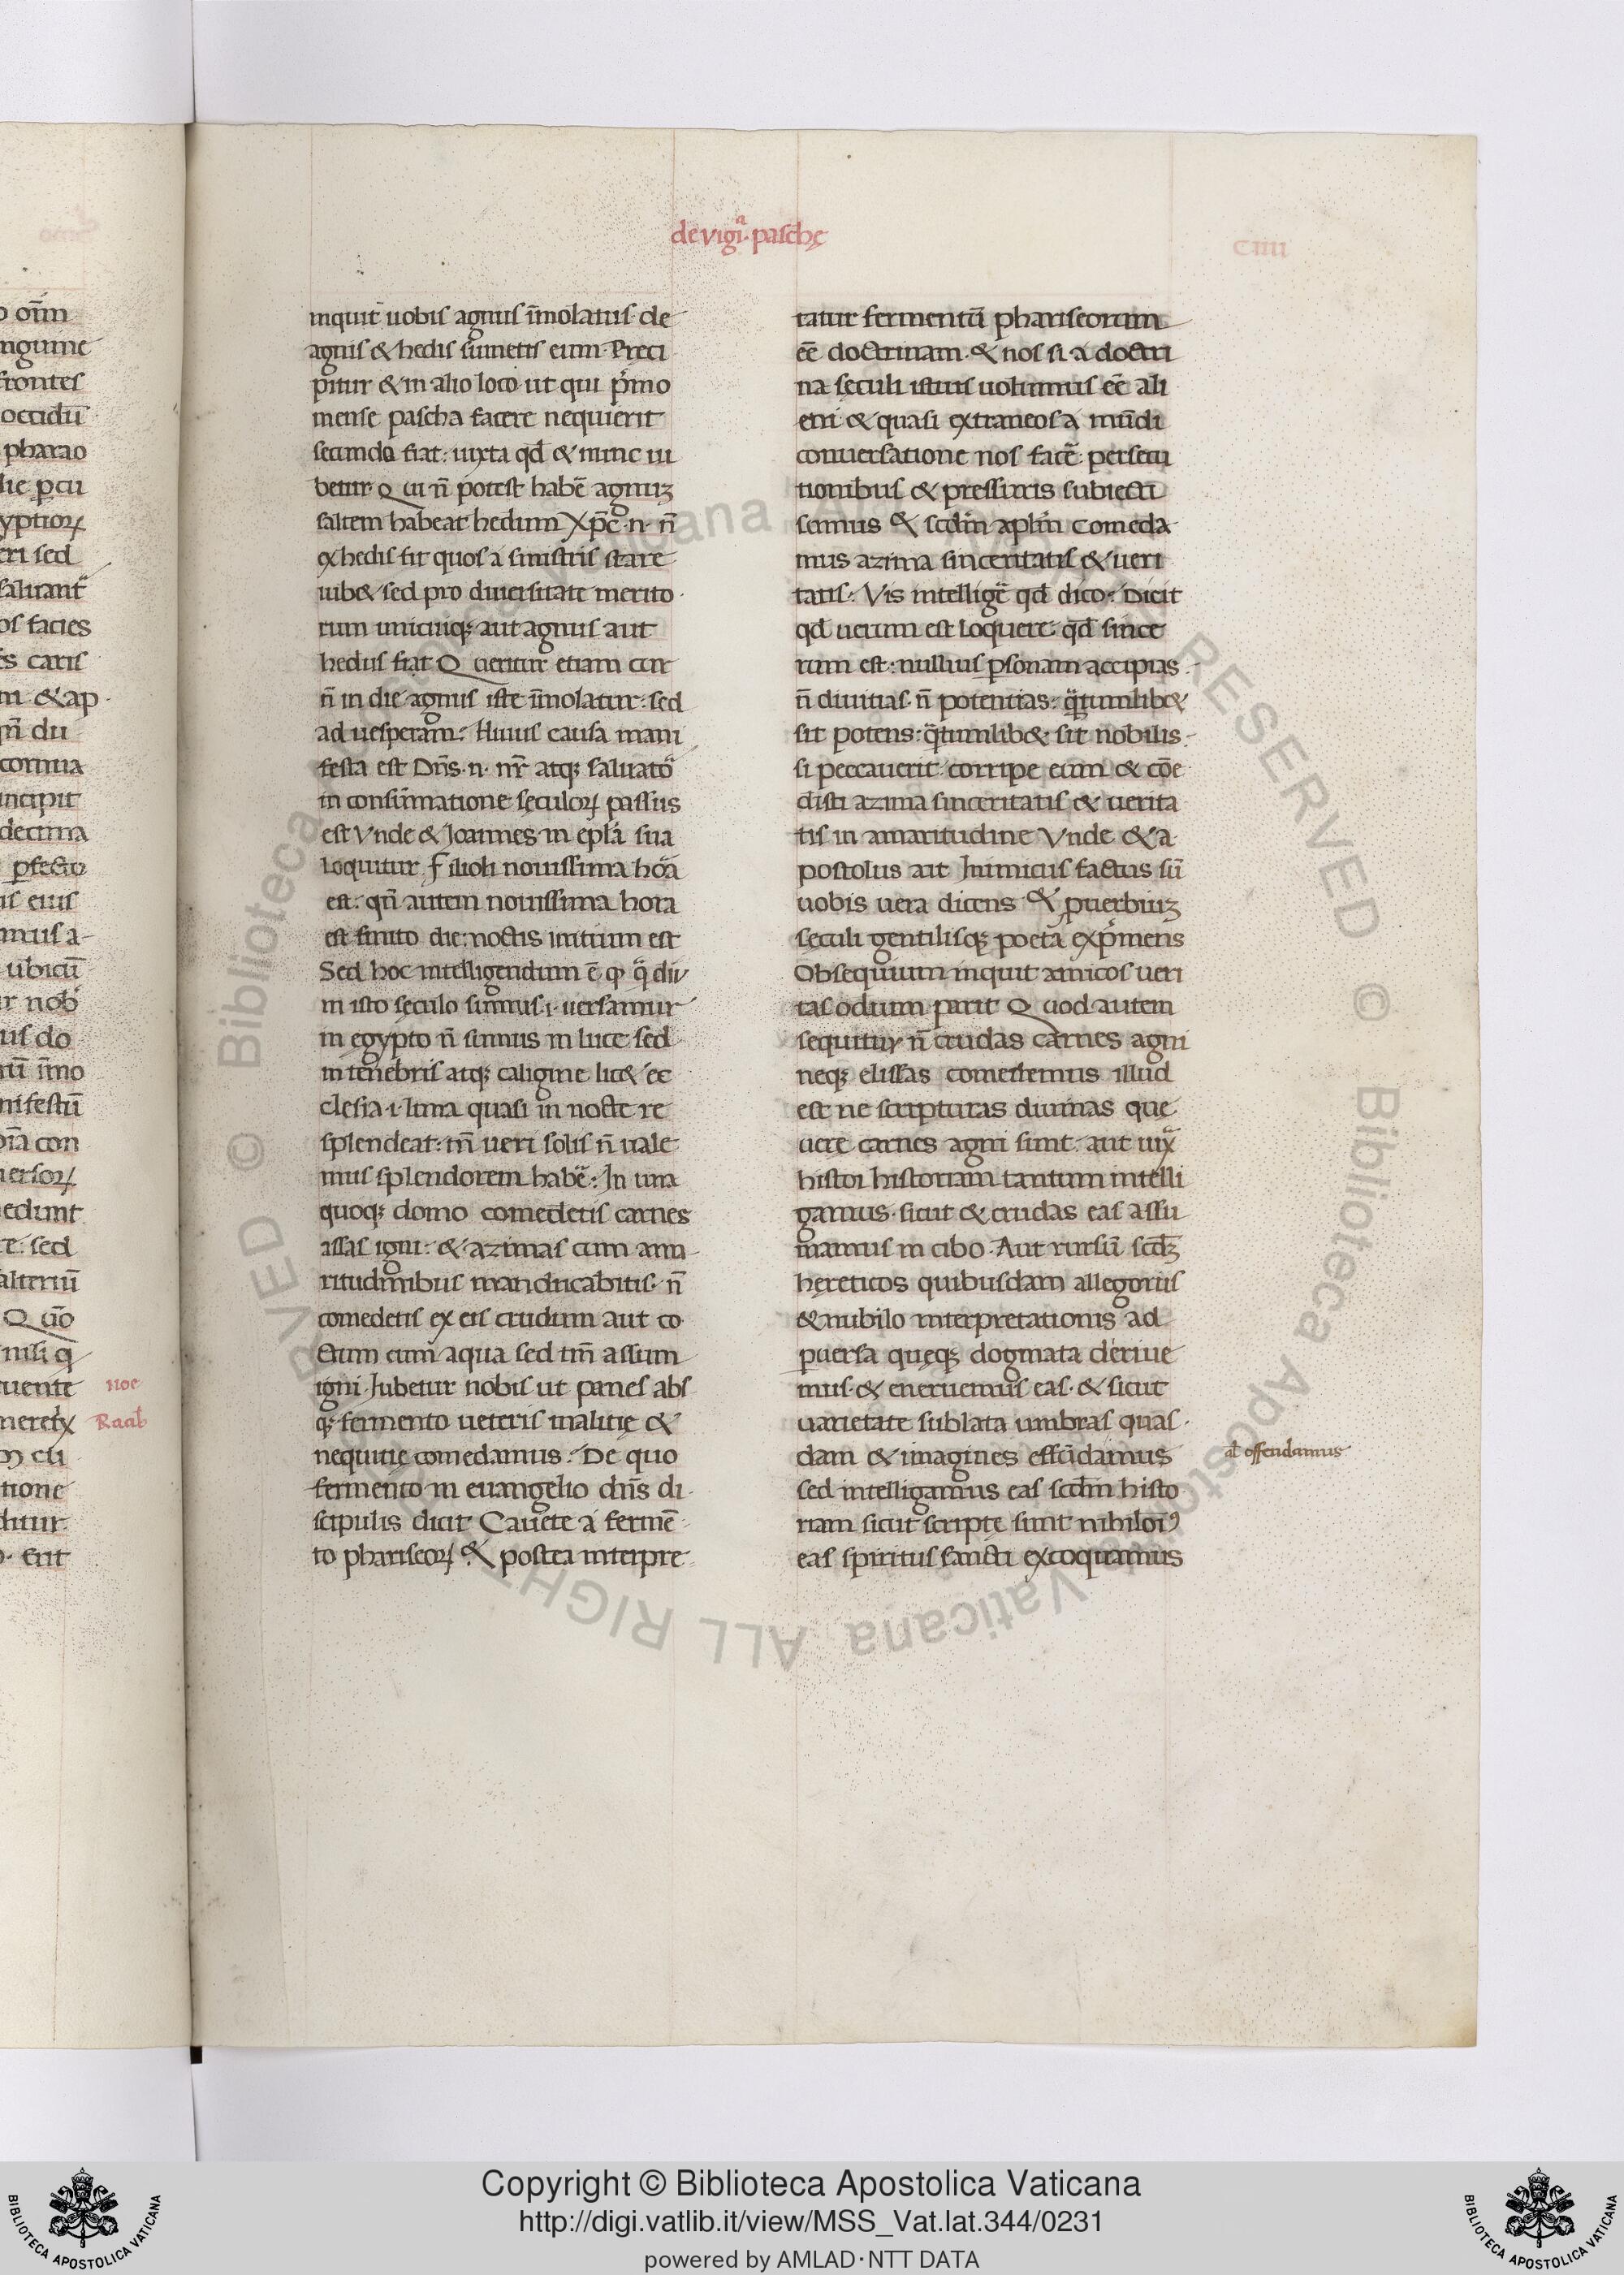 de vigiᵃ· paschę
CIIII
inquit uobis agnus īmolatus· de
agnis & hedis sumetis eum· Preci
pitur & in alio loco· ut qui pͥmo
mense pascha facere nequierit
secundo fiat: iuxta qđ & nunc iu
betur Qui n̄ potest habē agnuꝫ
saltem habeat hedum Xp̄c· n· n̄
ex hedis fit quos a sinistris stare
iub& sed pro diuersitate merito
rum unicuiqꝫ aut agnus aut
hedus fiat Queritur etiam cur
n̄ in die agnus iste īmolatur: sed
ad uesperam: Huius causa mani
festa est Dn̄s· n· nr̄ atqꝫ saluator
in consūmatione sęculoꝝ passus
est Vnde & Joannes in epl̄a sua
loquitur Filioli nouissima hora
est: qn̄ autem nouissima hora
est finito die: noctis initium est
Sed hoc intelligendum ē ꝙ qͣ diu
in isto sęculo sumus· i· uersamur
in egypto n̄ sumus in luce sed
in tenebris atqꝫ caligine lic& ec
clesia· i· luna quasi in nocte re
splendeat: tn̄ ueri solis n̄ uale
mus splendorem habē: In una
quoqꝫ domo comedetis carnes
assas igni: & azimas cum ama
ritudinibus manducabitis· n̄
comedetis ex eis crudum aut co
ctum cum aqua sed tm̄ assum
igni Jubetur nobis ut panes abs
qꝫ fermento ueteris malitię &
nequitię comedamus: De quo
fermento in euangelio dn̄s di
scipulis dicit Cauete a fermē
to phariseoꝝ & postea interpre
tatur fermentū phariseorum
eē doctrinam· & nos si a doctri
na sęculi istius uolumus eē ali
eni & quasi extraneos a mūdi
conuersatione nos facē: persecu
tionibus & pressuris subiecti
semus & scdm̄ aplm̄ comeda
mus azima sinceritatis & ueri
tatis: Vis intelligē qđ dico: Dicit
qđ uerum est loquere· qđ since
rum est: nullius ꝑsonam accipias
n̄ diuitias· n̄ potentias: qͣtumlib&
sit potens: qͣtumlib& sit nobilis
si peccauerit corripe eum & cōe
disti azima sinceritatis & uerita
tis in amaritudine Vnde & a
postolus ait Inimicus factus sū
uobis uera dicens & ꝓuerbiuꝫ
sęculi gentilisqꝫ poeta expͥmens
Obsequium inquit amicos ueri
tas odium parit Quod autem
sequitur n̄ crudas carnes agni
neqꝫ elissas comedemus illud
est ne scripturas diuinas que
uere carnes agni sunt: aut iuxͣ
histor historiam tantum intelli
gamus· sicut & crudas eas assu
mamus in cibo· Aut rursū scđꝫ
hęreticos quibusdam allegoriis
& nubilo interpretationis ad
ꝑuersa quęqꝫ dogmata deriue
mus· & eneruemus eas· & sicut
uarietate sublata umbras quas
dam & imagines effūdamus
al̄ offendamus
sed intelligamus eas scdm̄ histo
riam sicut scriptę sunt nihiloīꝰ
eas spiritus sancti excoquamus
noe
Raab
Copyright © Biblioteca Apostolica Vaticana
http://digi.vatlib.it/view/MSS_Vat.lat.344/0231
powered by AMLAD·NTT DATA
BIBLIOTECA APOSTOLICA VATICANA
BIBLIOTECA APOSTOLICA VATICANA